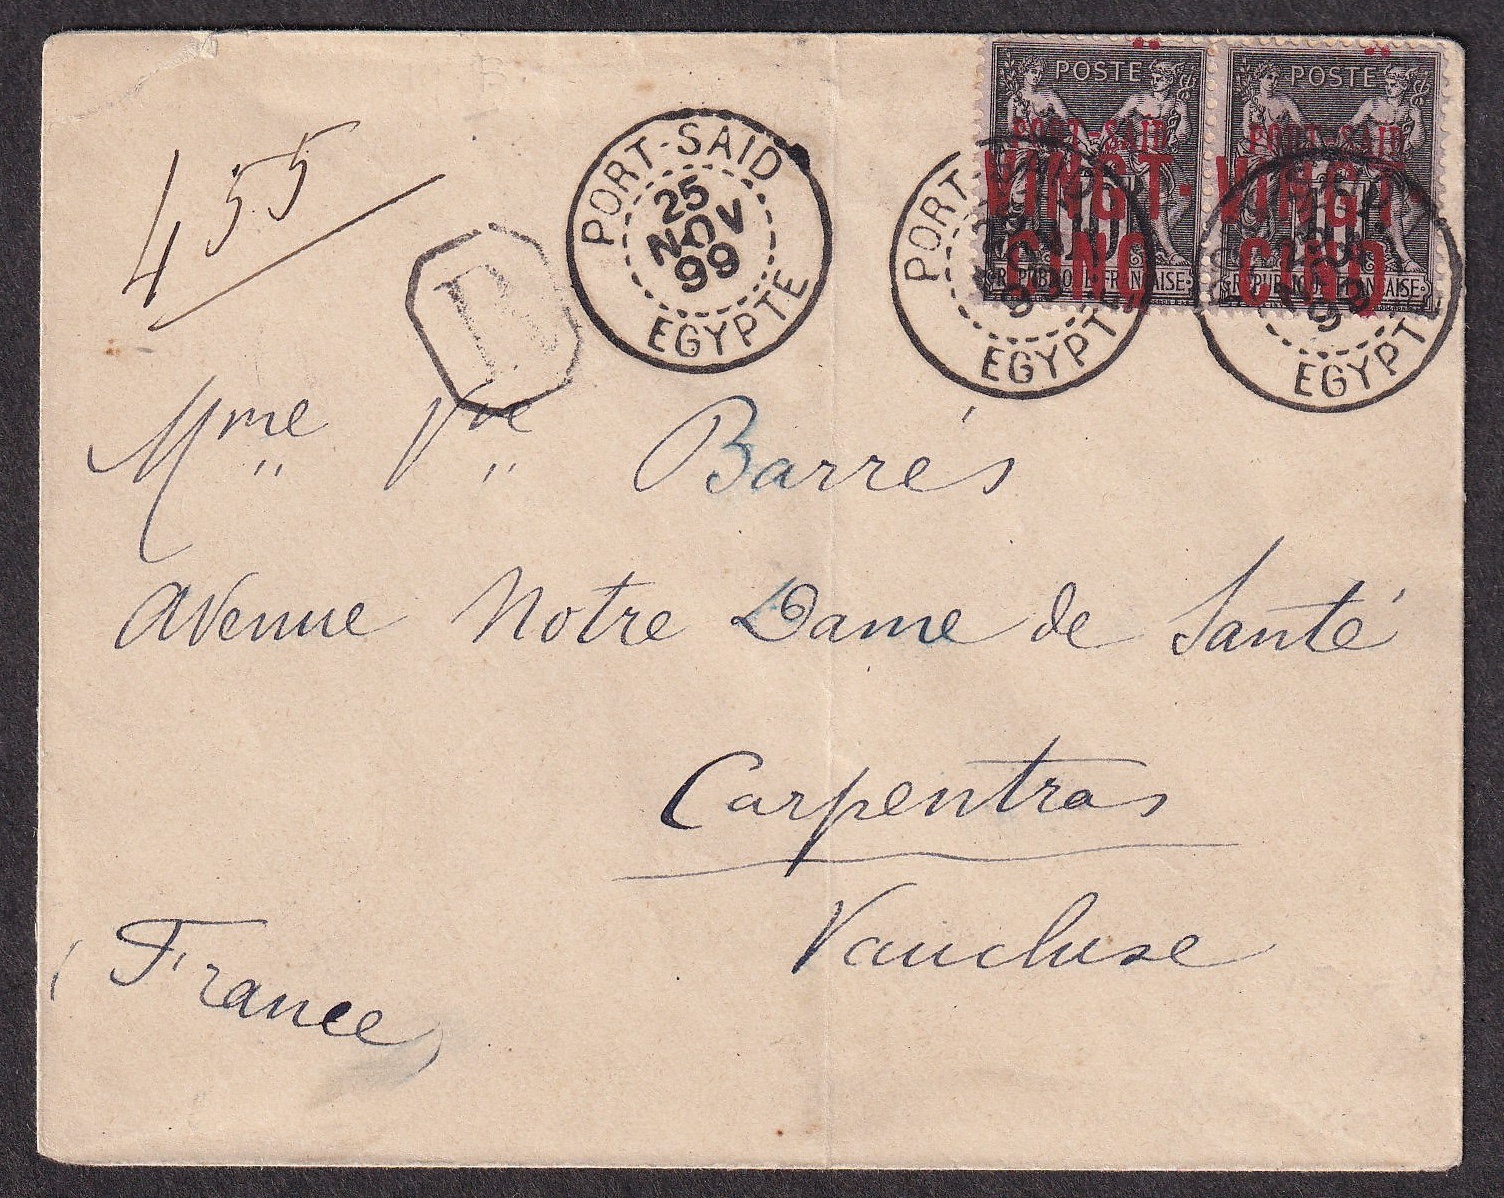 455
R
PORT-SAID
25
NOV
99
EGYPTE
POSTE
PORT-SAID
VINGT-
CINQ
REPUBLIQUE FRANÇAISE
POSTE
PORT-SAID
VINGT
CINQ
REPUBLIQUE FRANÇAISE
PORT-
EGYPTE
EGYPTE
Mme Vve Barrés
Avenue Notre Dame de Santé
Carpentras
Vaucluse
(France)